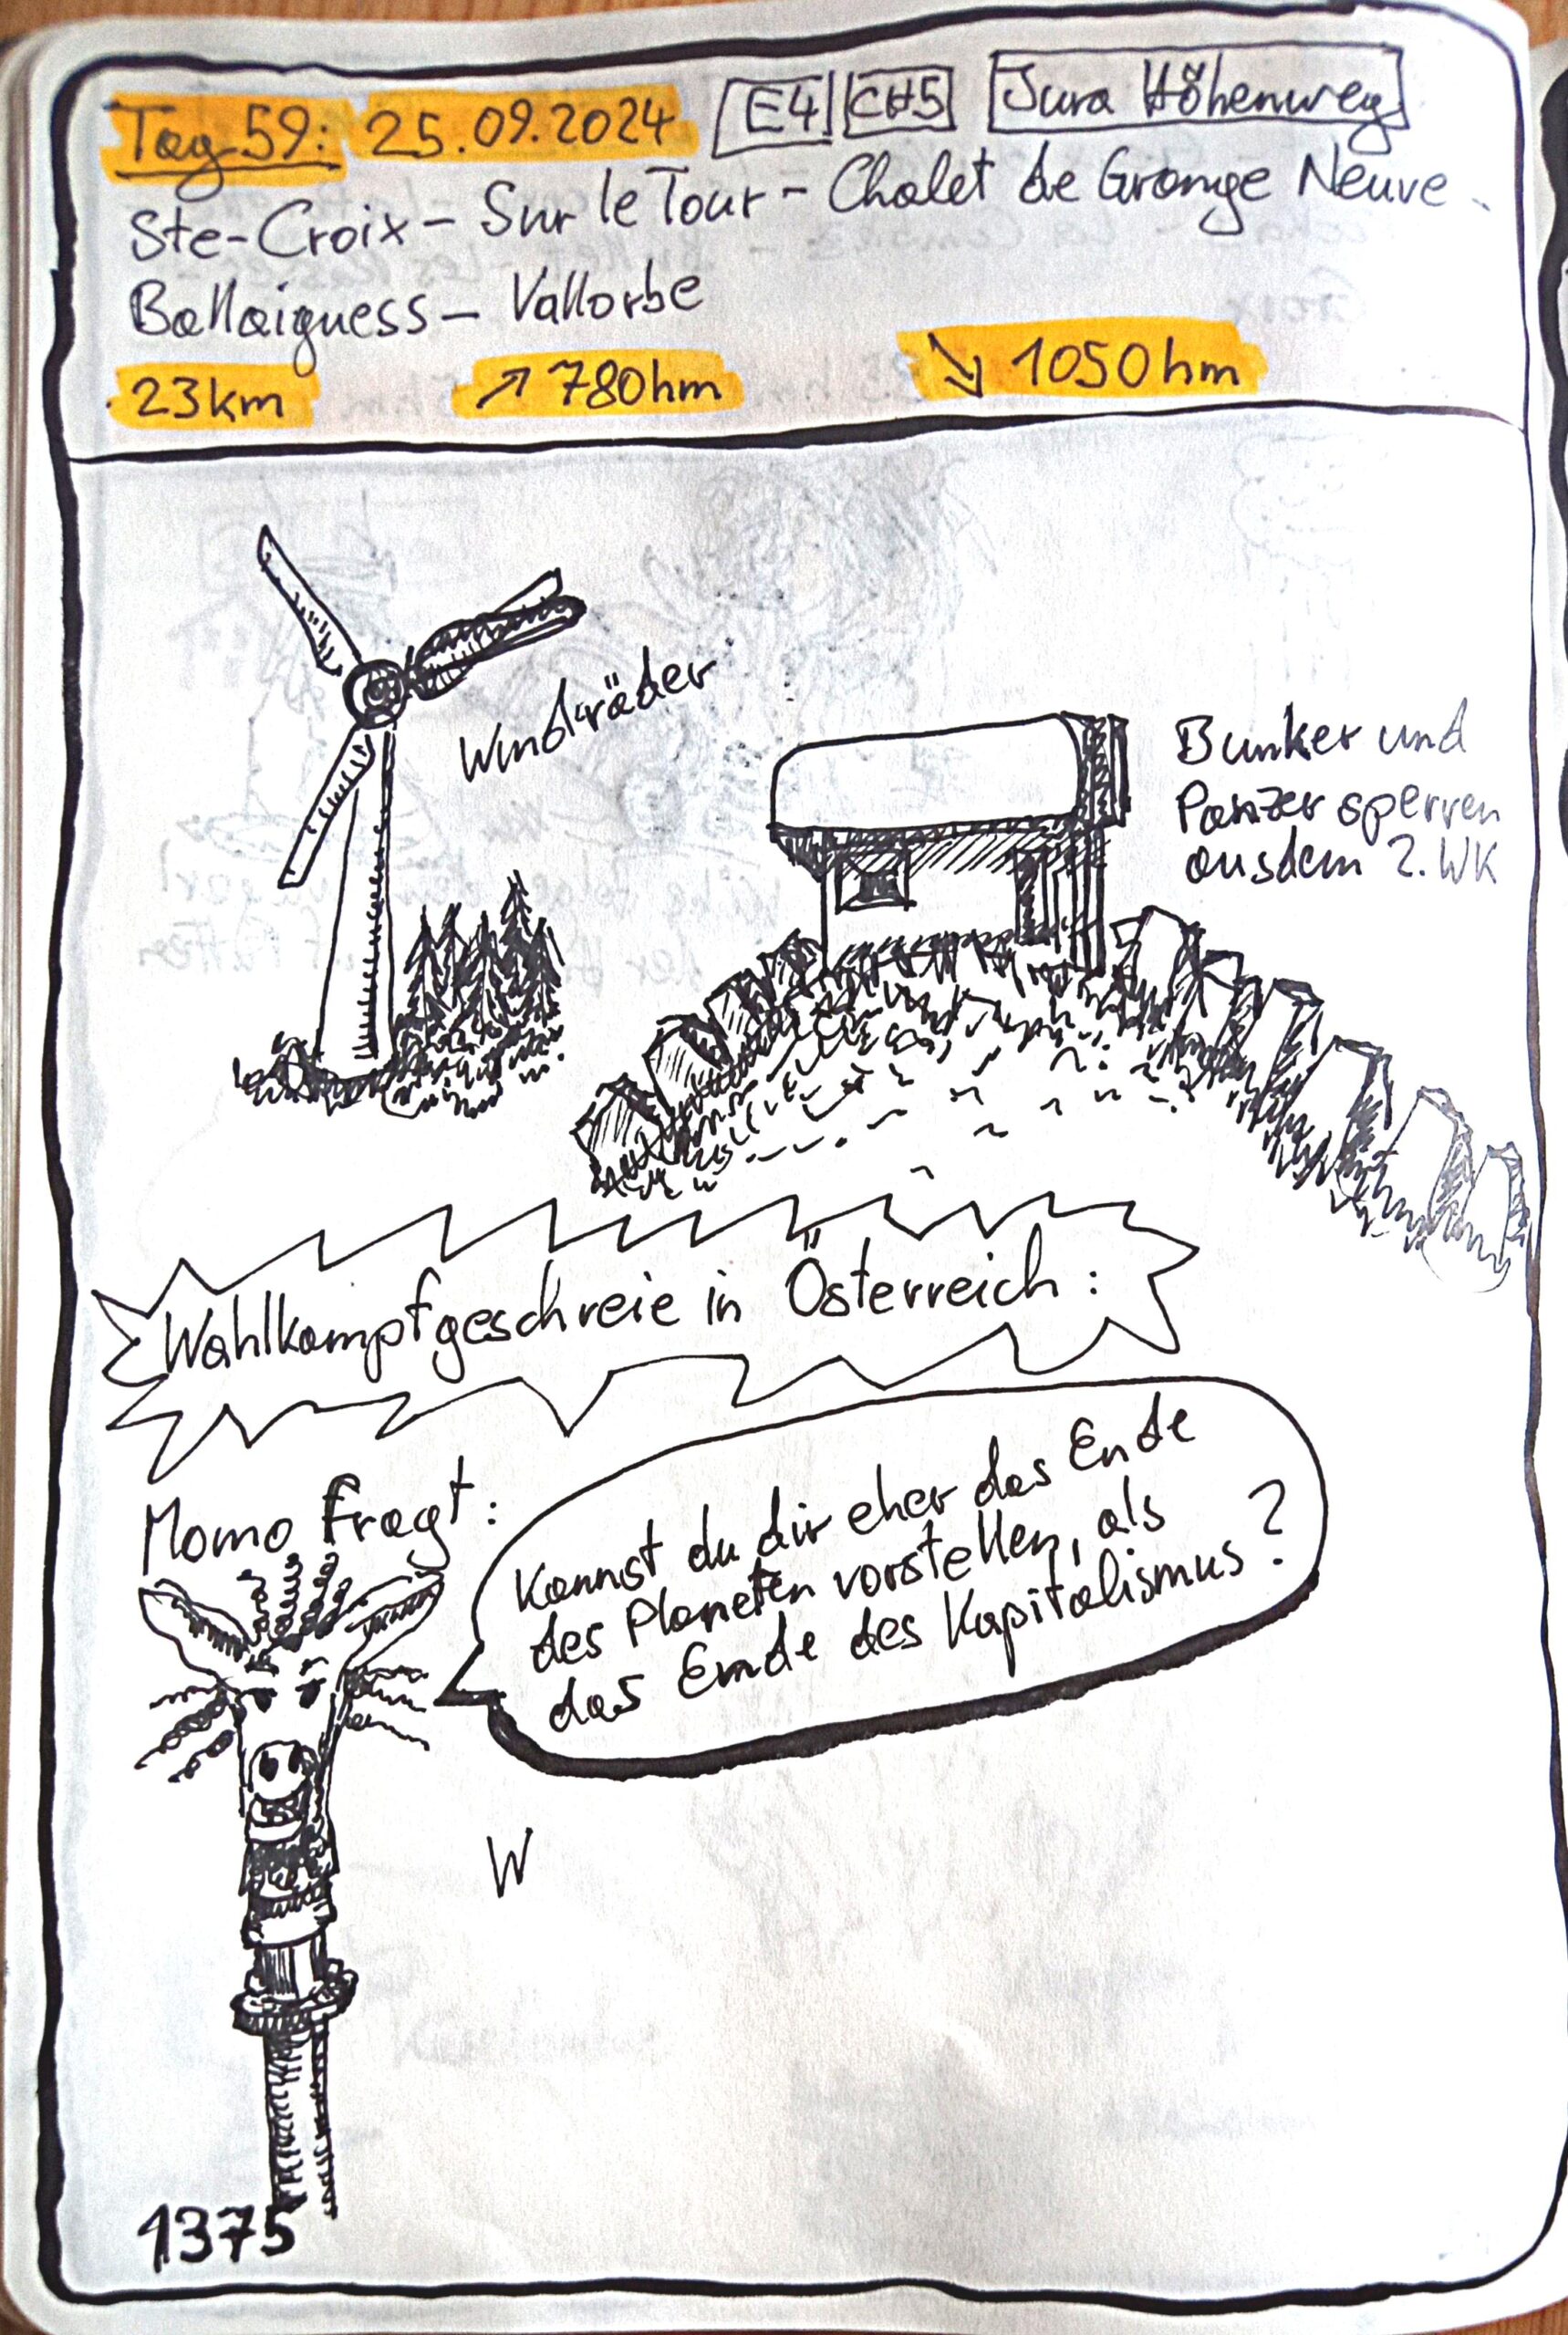 Tag 59: 25.09.2024 E4 CH5 Jura Höhenweg
Ste-Croix – Sur le Tour – Chalet de Grange Neuve -
Ballaiguess – Vallorbe
23km ↗ 780hm ↘ 1050hm
Windräder
Bunker und
Panzersperren
aus dem 2. WK
Wahlkampfgeschreie in Österreich:
Momo fragt:
Kannst du dir eher das Ende
des Planeten vorstellen, als
das Ende des Kapitalismus?
W
1375